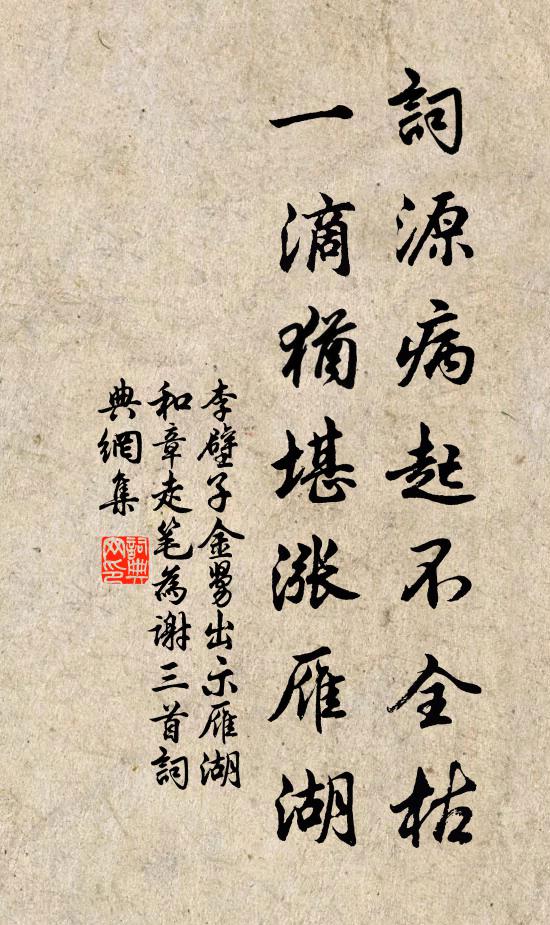 詞源病起不全枯
一滴猶堪漲雁湖
李壁子金舅出示雁湖
和章走笔為谢三首詞
典網集
詞典
网印